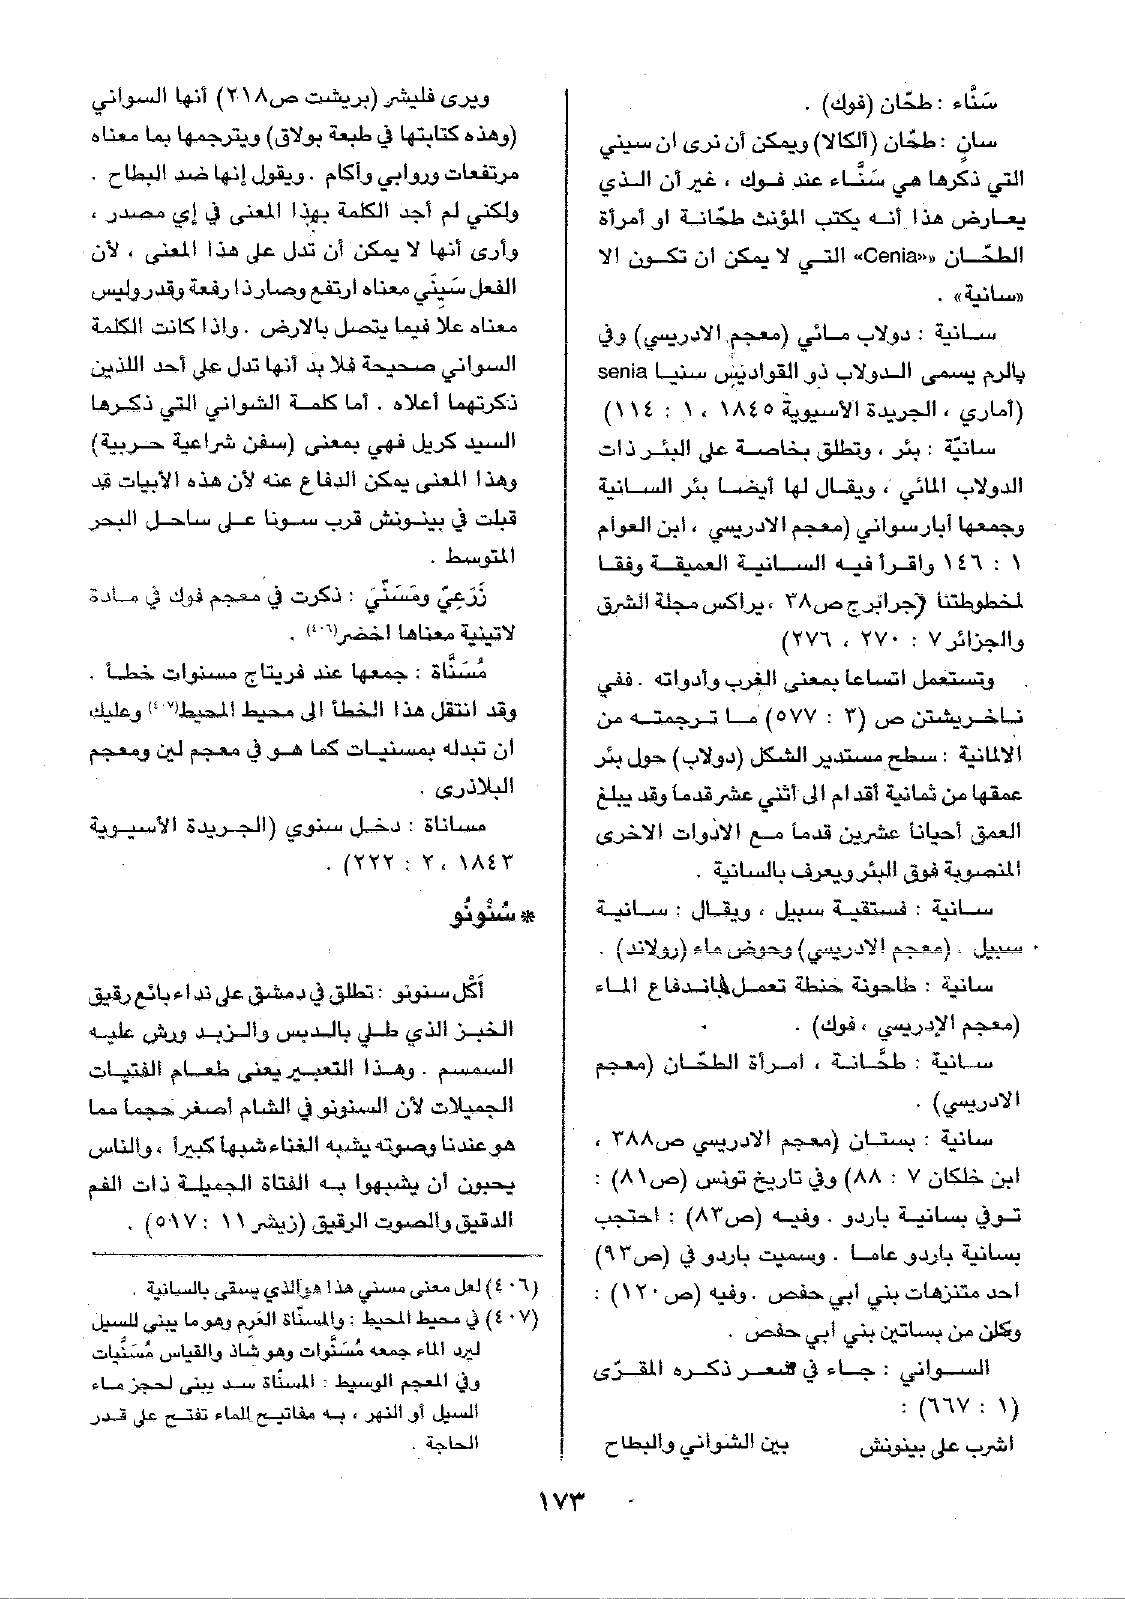 سَنَّاء : طحّان (فوك) .
سانٍ : طحّان (ألكالا) ويمكن أن نرى ان سيني
التي ذكرها هي سَنَّاء عند فوك ، غير أن الذي
يعارض هذا أنه يكتب المؤنث طحّانة او أمرأة
الطحّان «Cenia» التي لا يمكن ان تكون الا
«سانية» .
سانية : دولاب مائي (معجم الادريسي) وفي
بالرم يسمى الدولاب ذو القواديس سنيا senia
(أماري ، الجريدة الأسيوية ١٨٤٥ ، ١ : ١١٤)
سانيّة : بئر ، وتطلق بخاصة على البئر ذات
الدولاب المائي ، ويقال لها أيضا بئر السانية
وجمعها أبار سواني (معجم الادريسي ، ابن العوام
١ : ١٤٦ واقرأ فيه السانية العميقة وفقا
لخطوطتنا (جرابرج ص٣٨ ، براكس مجلة الشرق
والجزائر ٧ : ٢٧٠ ، ٢٧٦)
وتستعمل اتساعا بمعنى الغرب وأدواته . ففي
ناخريشتن ص (٣ : ٥٧٧) ما ترجمته من
الالمانية : سطح مستدير الشكل (دولاب) حول بئر
عمقها من ثمانية أقدام الى أثني عشر قدما وقد يبلغ
العمق أحيانا عشرين قدما مع الأدوات الاخرى
المنصوبة فوق البئر ويعرف بالسانية .
سانية : فستقية سبيل ، ويقال : سانية
سبيل . (معجم الادريسي) وحوض ماء (رولاند) .
سانية : طاحونة حنطة تعمل باندفاع الماء
(معجم الإدريسي ، فوك) .
سانية : طحّانة ، امرأة الطحّان (معجم
الادريسي) .
سانية : بستان (معجم الادريسي ص٣٨٨ ،
ابن خلكان ٧ : ٨٨) وفي تاريخ تونس (ص٨١) :
توفي بسانية باردو . وفيه (ص٨٣) : احتجب
بسانية باردو عاما . وسميت باردو في (ص٩٣)
أحد متنزهات بني أبي حفص . وفيه (ص١٢٠) :
وكان من بساتين بني أبي حفص .
السواني : جاء في شعر ذكره المقرّى
(١ : ٦٦٧) :
اشرب على بينونش بين الشواني والبطاح
ويرى فليشر (بريشت ص٢١٨) أنها السواني
(وهذه كتابتها في طبعة بولاق) ويترجمها بما معناه
مرتفعات وروابي وأكام . ويقول إنها ضد البطاح .
ولكني لم أجد الكلمة بهذا المعنى في إي مصدر ،
وأرى أنها لا يمكن أن تدل على هذا المعنى ، لأن
الفعل سَنِيَ معناه ارتفع وصار ذا رفعة وقدر وليس
معناه علا فيما يتصل بالارض . واذا كانت الكلمة
السواني صحيحة فلا بد أنها تدل على أحد اللذين
ذكرتهما أعلاه . أما كلمة الشواني التي ذكرها
السيد كريل فهي بمعنى (سفن شراعية حربية)
وهذا المعنى يمكن الدفاع عنه لأن هذه الأبيات قد
قيلت في بينونش قرب سونا على ساحل البحر
المتوسط .
زَرَعيّ ومَسَنّيَ : ذكرت في معجم فوك في مادة
لاتينية معناها اخضر(٤٠٦) .
مُسَنَّاة : جمعها عند فريتاج مسنوات خطأ .
وقد انتقل هذا الخطأ الى محيط المحيط(٤٠٧) وعليك
ان تبدله بمسنيات كما هو في معجم لين ومعجم
البلاذري .
مساناة : دخل سنوي (الجريدة الأسيوية
١٨٤٣ ، ٢ : ٢٢٢) .
* سُنْونُو
أَكْل سنونو : تطلق في دمشق على نداء بائع رقيق
الخبز الذي طلي بالدبس والزبد ورش عليه
السمسم . وهذا التعبير يعنى طعام الفتيات
الجميلات لأن السنونو في الشام أصغر حجما مما
هو عندنا وصوته يشبه الغناء شبها كبيرا ، والناس
يحبون أن يشبهوا به الفتاة الجميلة ذات الفم
الدقيق والصوت الرقيق (زيشر ١١ : ٥١٧) .
(٤٠٦) لعل معنى مسني هذا هو الذي يسقى بالسانية .
(٤٠٧) في محيط المحيط : والمسنّاة العَرِم وهو ما يبنى للسيل
ليرد الماء جمعه مُسَنَّوات وهو شاذ والقياس مُسَنَّيات
وفي المعجم الوسيط : المسنّاة سد يبنى لحجز ماء
السيل أو النهر ، به مفاتيح للماء تفتح على قدر
الحاجة .
١٧٣